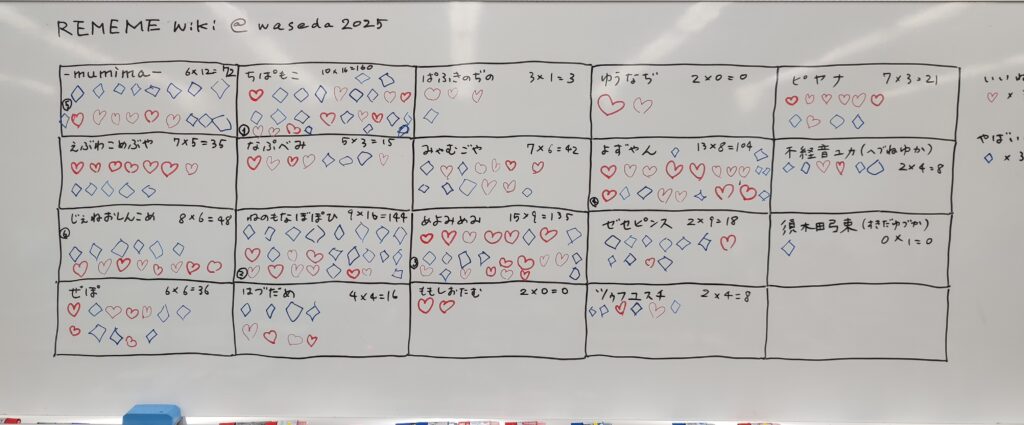 REMEME Wiki @ waseda 2025
-mumima- 6×12=72
⑤
ちぱもこ 10×16=160
①
ぱふきのぢの 3×1=3
ゆうなぢ 2×0=0
ピヤナ 7×3=21
いいね
♡×
えぶわこめぶや 7×5=35
なぷべみ 5×3=15
みゃむごや 7×6=42
よずやん 13×8=104
④
不経音ユカ(へづねゆか)
2×4=8
やばい
◇×3
じぇねおしんこめ 8×6=48
⑥
ねのもなぼぽひ 9×16=144
②
めよみめみ 15×9=135
③
ゼセピンス 2×9=18
須木田弓束(すきだゆづか)
0×1=0
ぜぽ 6×6=36
はづだめ 4×4=16
ももしおたむ 2×0=0
ツゥフユスチ 2×4=8